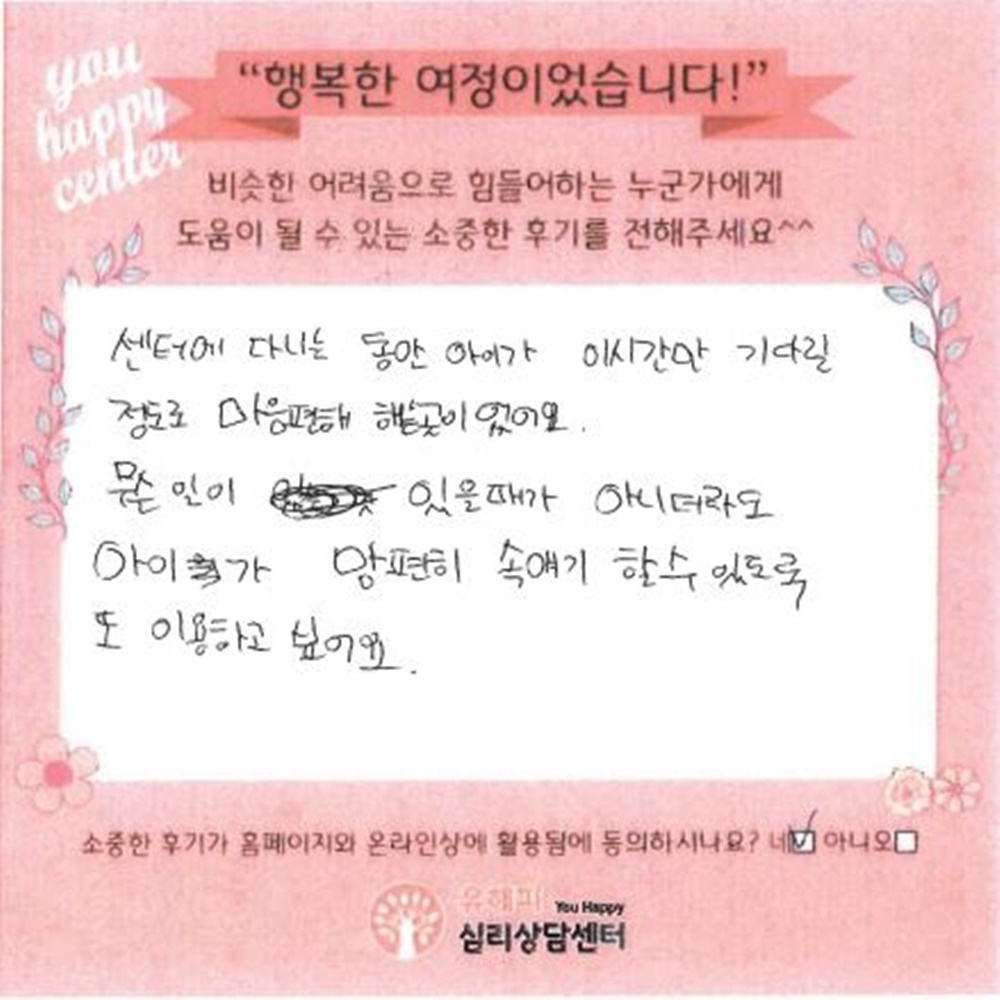 you
happy
center
“행복한 여정이었습니다!”
비슷한 어려움으로 힘들어하는 누군가에게
도움이 될 수 있는 소중한 후기를 전해주세요^^
센터에 다니는 동안 아이가 이시간만 기다릴
정도로 마음편해 했었어요.
무슨일이 있을때가 아니더라도
아이가 맘편히 속얘기 할수 있도록
또 이용하고 싶어요.
소중한 후기가 홈페이지와 온라인상에 활용됨에 동의하시나요? 네 아니오
유해피 You Happy
심리상담센터